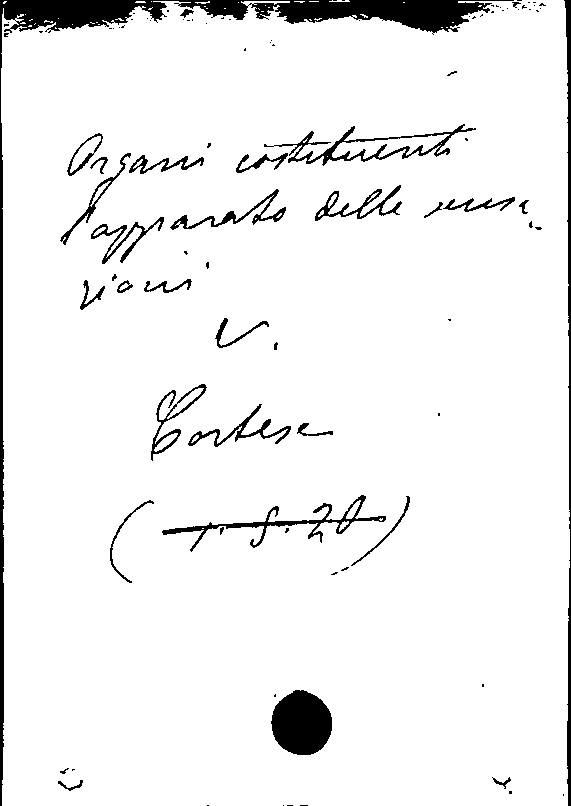 Organi costituenti
l'apparato delle sensa-
zioni
V.
Cortese
(1.S.20)